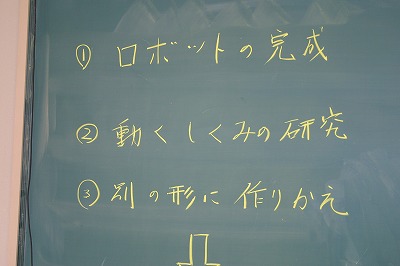 ① ロボットの完成
② 動くしくみの研究
③ 別の形に作りかえ